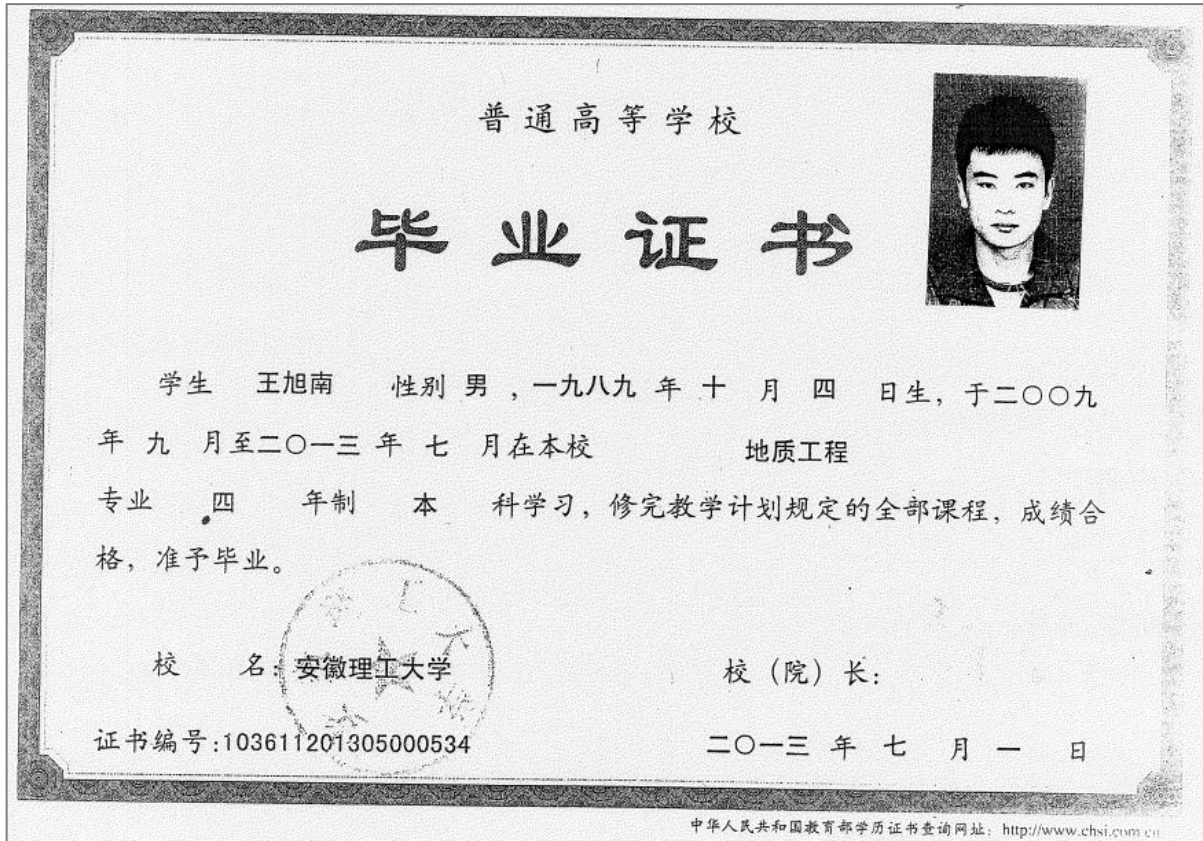 普通高等学校
毕业证书
学生 王旭南 性别 男，一九八九 年 十 月 四 日生，于二〇〇九
年 九 月至二〇一三 年 七 月在本校 地质工程
专业 四 年制 本 科学习，修完教学计划规定的全部课程，成绩合
格，准予毕业。
校 名：安徽理工大学 校（院）长：
证书编号：103611201305000534 二〇一三 年 七 月 一 日
中华人民共和国教育部学历证书查询网址：http://www.chsi.com.cn